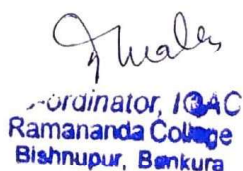 -ordinator, IQAC
Ramananda College
Bishnupur, Bankura